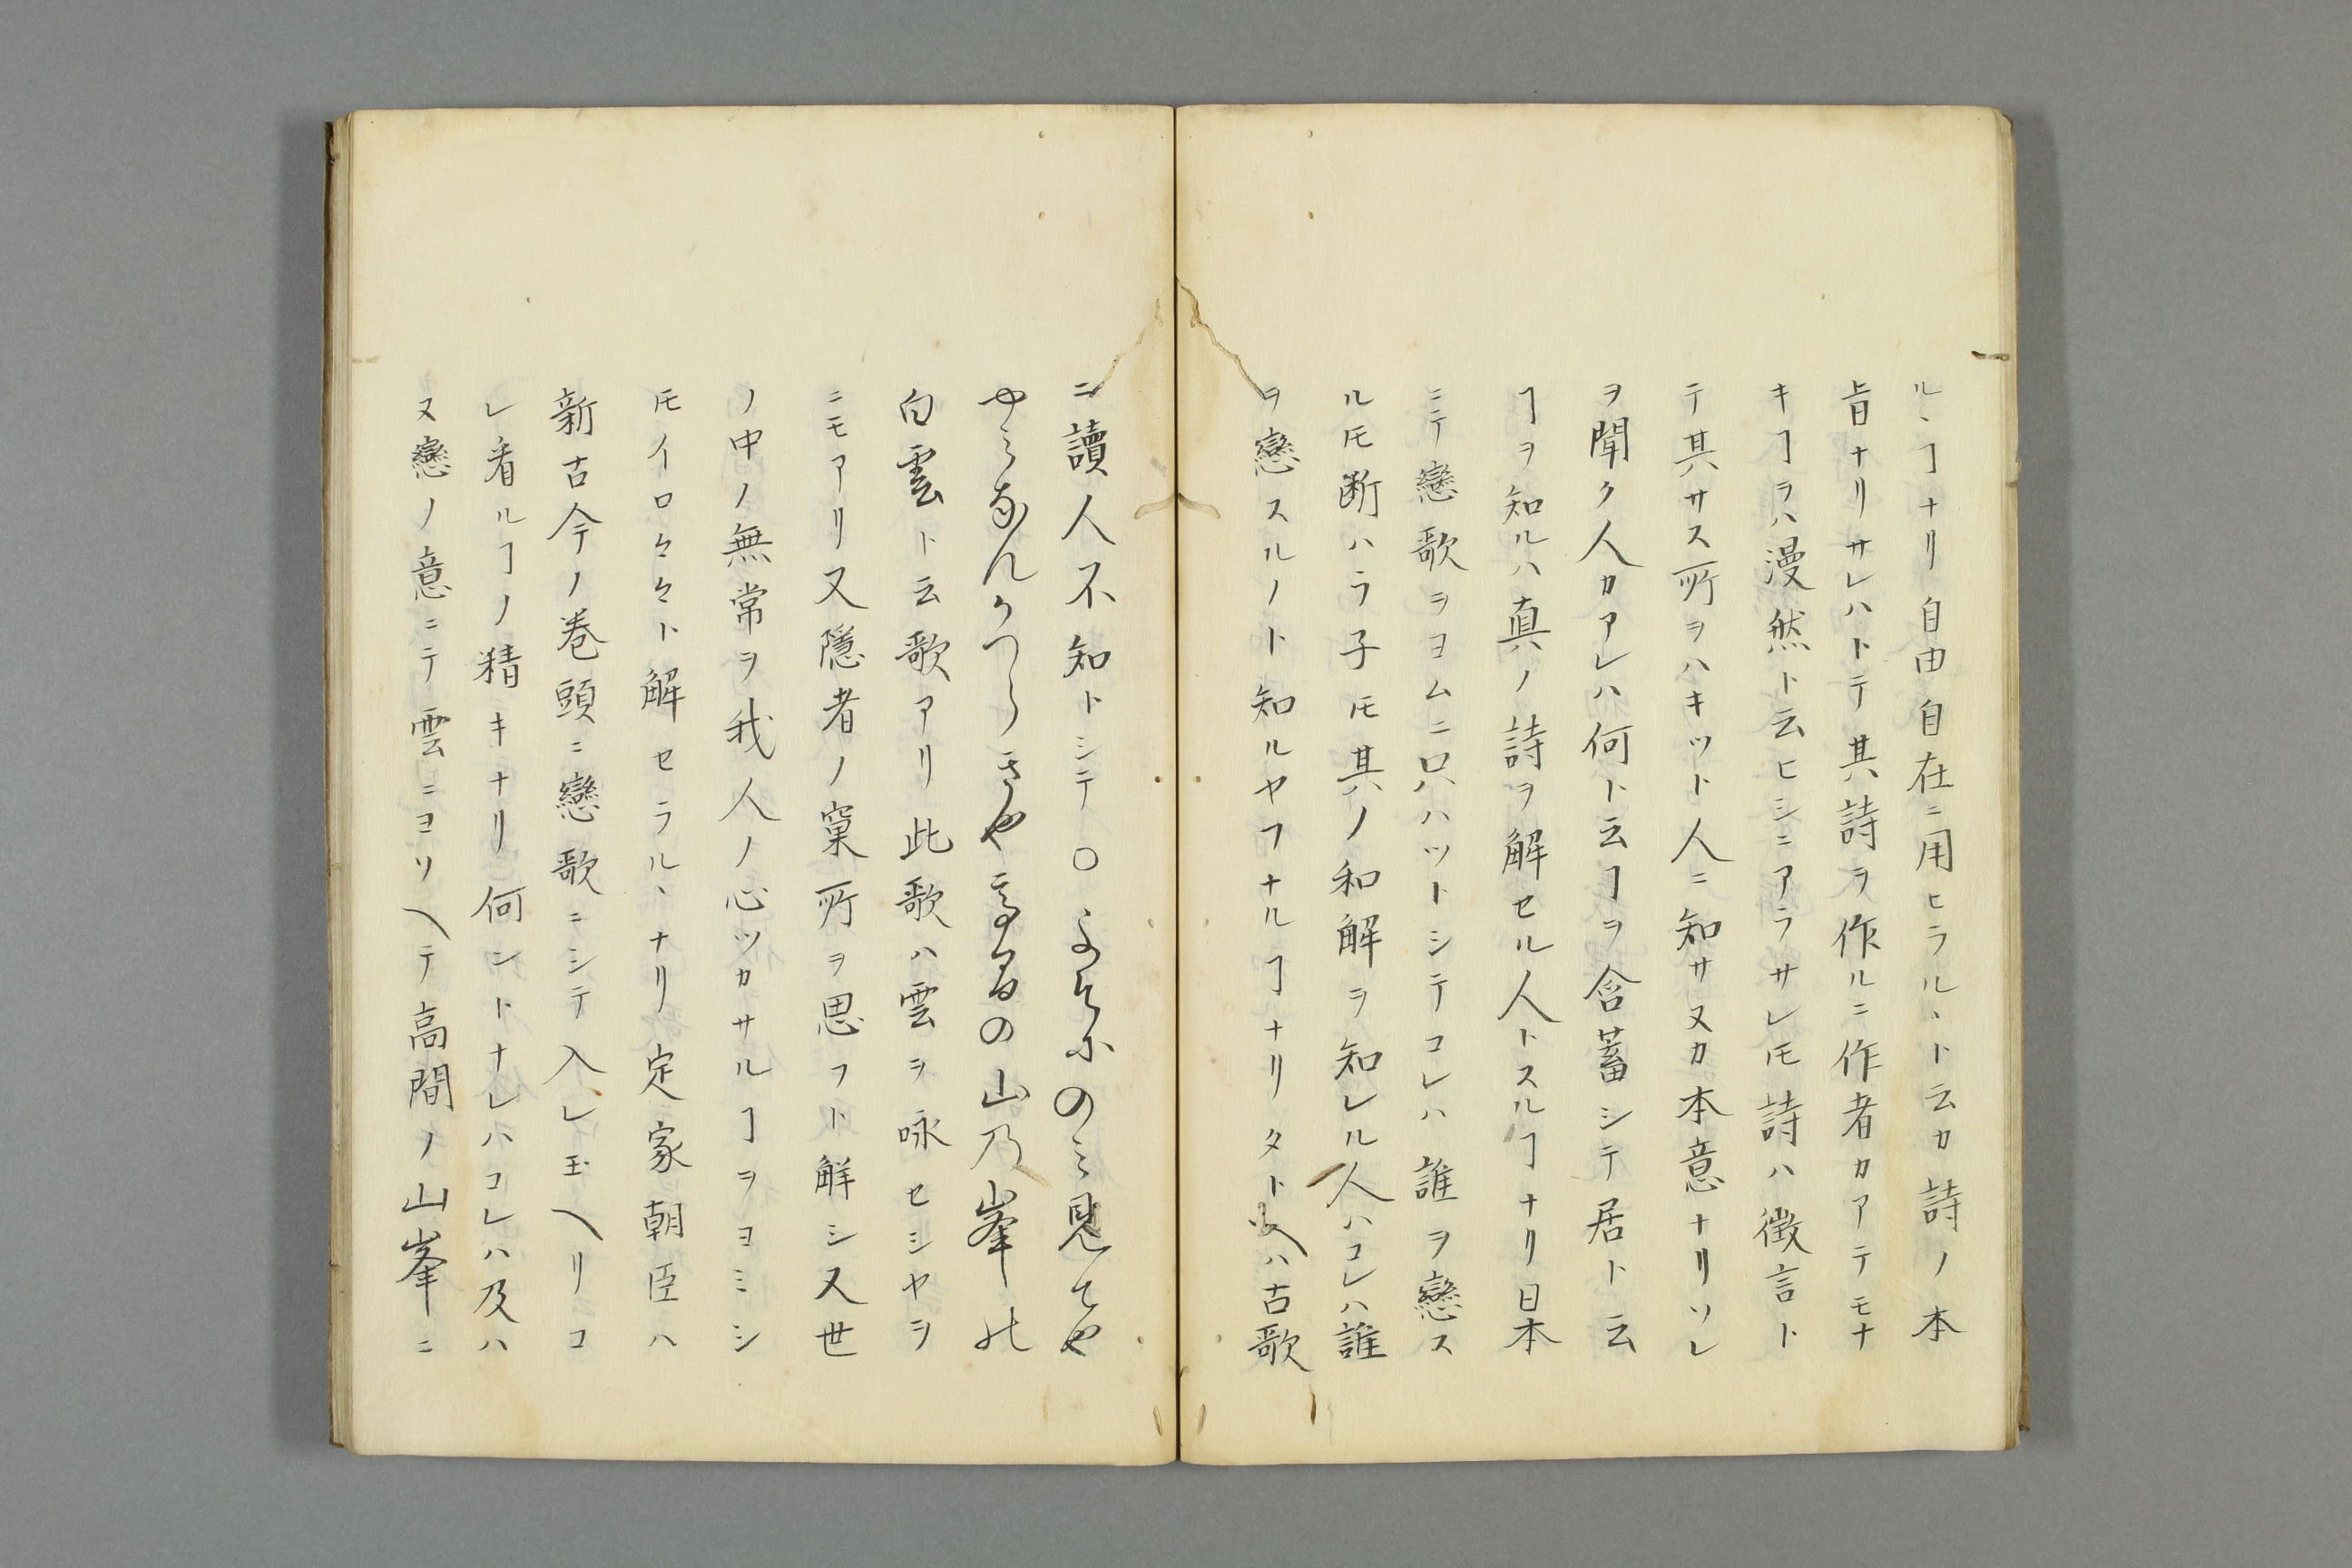 ルヽヿナリ自由自在ニ用ヒラルヽト云カ詩ノ本
旨ナリサレハトテ其詩ヲ作ルニ作者カアテモナ
キヿヲハ漫然ト云ヒシニアラサレ𪜈詩ハ徴言ト
テ其サス所ヲハキツト人ニ知サヌカ本意ナリソレ
ヲ聞ク人カアレハ何ト云ヿヲ含蓄シテ居ト云
ヿヲ知ルハ真ノ詩ヲ解セル人トスルヿナリ日本
ニテ戀歌ヲヨムニ只ハツトシテコレハ誰ヲ戀ス
ル𪜈断ハラ子𪜈其ノ和解ヲ知レル人ハコレハ誰
ヲ戀スルノト知ルヤフナルヿナリタトヘハ古歌
ニ讀人不知トシテ〇よそにのミ見てや
やミなんかつらきや高間の山乃峯の
白雲ト云歌アリ此歌ハ雲ヲ咏セシヤヲ
ニモアリ又隱者ノ窠所ヲ思フト解シ又世
ノ中ノ無常ヲ我人ノ心ツカサルヿヲヨミシ
𪜈イロ々々ト解セラルヽナリ定家朝臣ハ
新古今ノ巻頭ニ戀歌ニシテ入レ玉ヘリコ
レ看ルヿノ精キナリ何ントナレハコレハ及ハ
ヌ戀ノ意ニテ雲ニヨリヘテ高間ノ山峯ニ